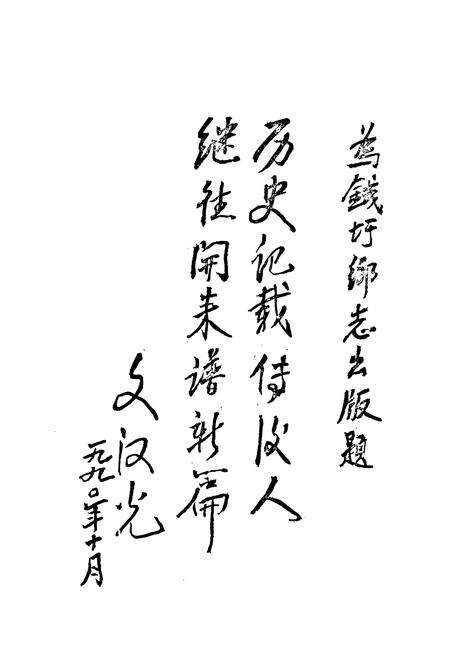 為錢圩鄉志出版題
历史记载传後人
继往開来谱新篇
文汉光
一九九〇年十月